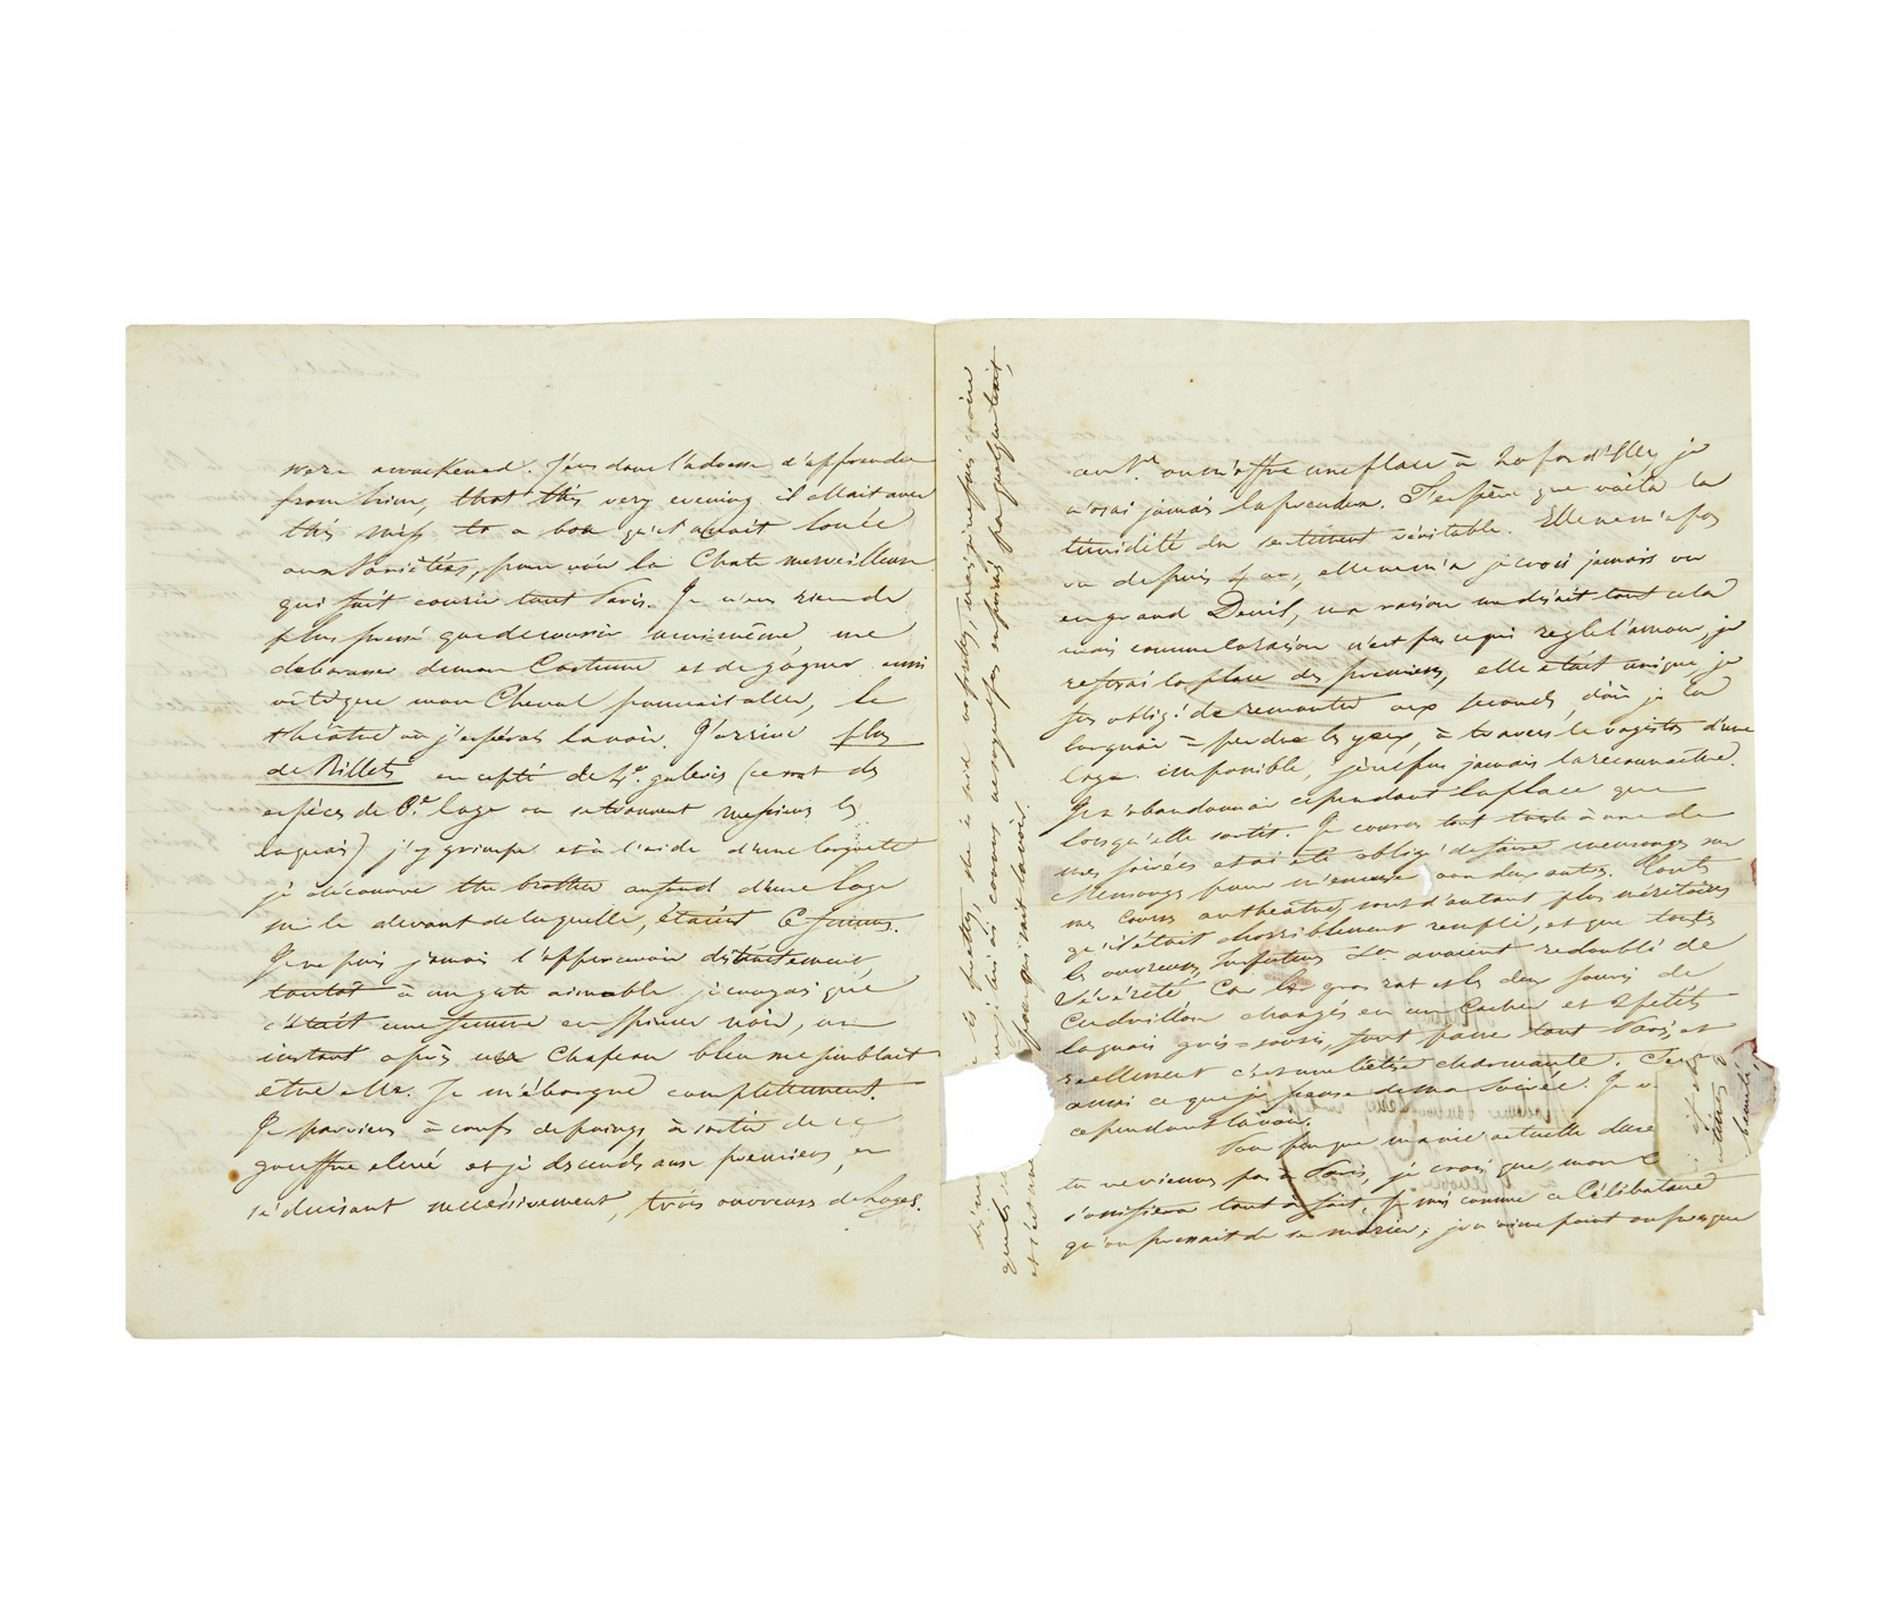 were awackened. J'eus donc l'adresse d'apprendre
from him, that this very evening il allait avec
this miss to a box qu'il avait louée
aux Variétés, pour voir la Chate merveilleuse
qui fait courir tout Paris. Je n'eus rien de
plus pressé que de courir moi-même, me
debarasser de mon Costume et de gagner aussi
vite que mon Cheval pouvait aller, le
théâtre où j'espérais la voir. J'arrive plus
de Billets excepté de 4e. galeries (ce sont des
espèces de loge où se trouvent messieurs les
laquais) j'y grimpe et à l'aide d'une lorgnette
je découvre the brother au fond d'une loge
sur le devant de laquelle, étaient femmes.
Je ne puis jamais l'appercevoir distinctement,
tantôt à un geste aimable je croyais que
c'était une femme en spencer noir, un
instant après un Chapeau bleu me semblait
être elle. Je m'éborgne complettement.
Je parviens à coups de poings, à sortir de ce
gouffre élevé et je descends aux premiers, en
séduisant successivement, trois ouvreuses de loges.
on m'offre une place à 20 pas d'Elle, je
n'osai jamais la prendre. J'espère que voilà la
timidité du sentiment véritable. Elle ne m'a pas
vu depuis 4 ans, elle ne m'a je crois jamais vu
en grand Deuil, ma raison me disait tout cela
mais comme la raison n'est pas ce qui regle l'amour, je
refusai la place des premiers, elle était unique, je
fus obligé de remonter aux seconds, d'où je la
lorgnai à perdre les yeux, à travers le vagistas d'une
loge. impossible, je ne pus jamais la reconnaître.
Je n'abandonnai cependant la place que
lorsqu'elle sortit. Je courus tout à une de
mes soirées et ai été obligé de faire mensonges sur
Mensonges pour m'excuser aux deux autres. Toutes
mes Courses au théâtre, sont d'autant plus méritoires
qu'il était horriblement rempli, et que toutes
les ouvreuses, avaient redoublé de
sévérité. Car le gros rat et les deux souris de
Cendrillon changés en un Cocher et 2 petits
laquais gris-souris, font courir tout Paris, et
reellement c'est une bétise charmante.
aussi ce que je pense de ma soirée. Je
cependant la voir.
que ma vie actuelle dure
tu ne viennes pas à Paris, je crois que mon
s'ossifiera tout à fait. Je suis comme ce Célibataire
qu'on pressait de se marier; je n'aime point ou presque
is pretty, she is said
pour qui sait la voir.
beauté,